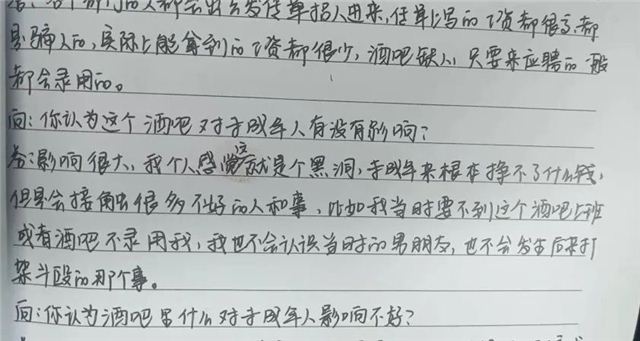 答：各个部门的人都会出去发传单招人进来，传单上写的工资都很高，都
是骗人的，实际上能拿到的工资都很少，酒吧缺人，只要来应聘的一般
都会录用的。
问：你认为这个酒吧对于成年人有没有影响？
答：影响很大，我个人感觉这就是个黑洞，未成年来根本挣不了什么钱，
但是会接触出很多不好的人和事，比如我当时要不到这个酒吧上班
或者酒吧不录用我，我也不会认识当时的男朋友，也不会发生后来打
架斗殴的那个事。
问：你认为酒吧里什么对于成年人影响不好？